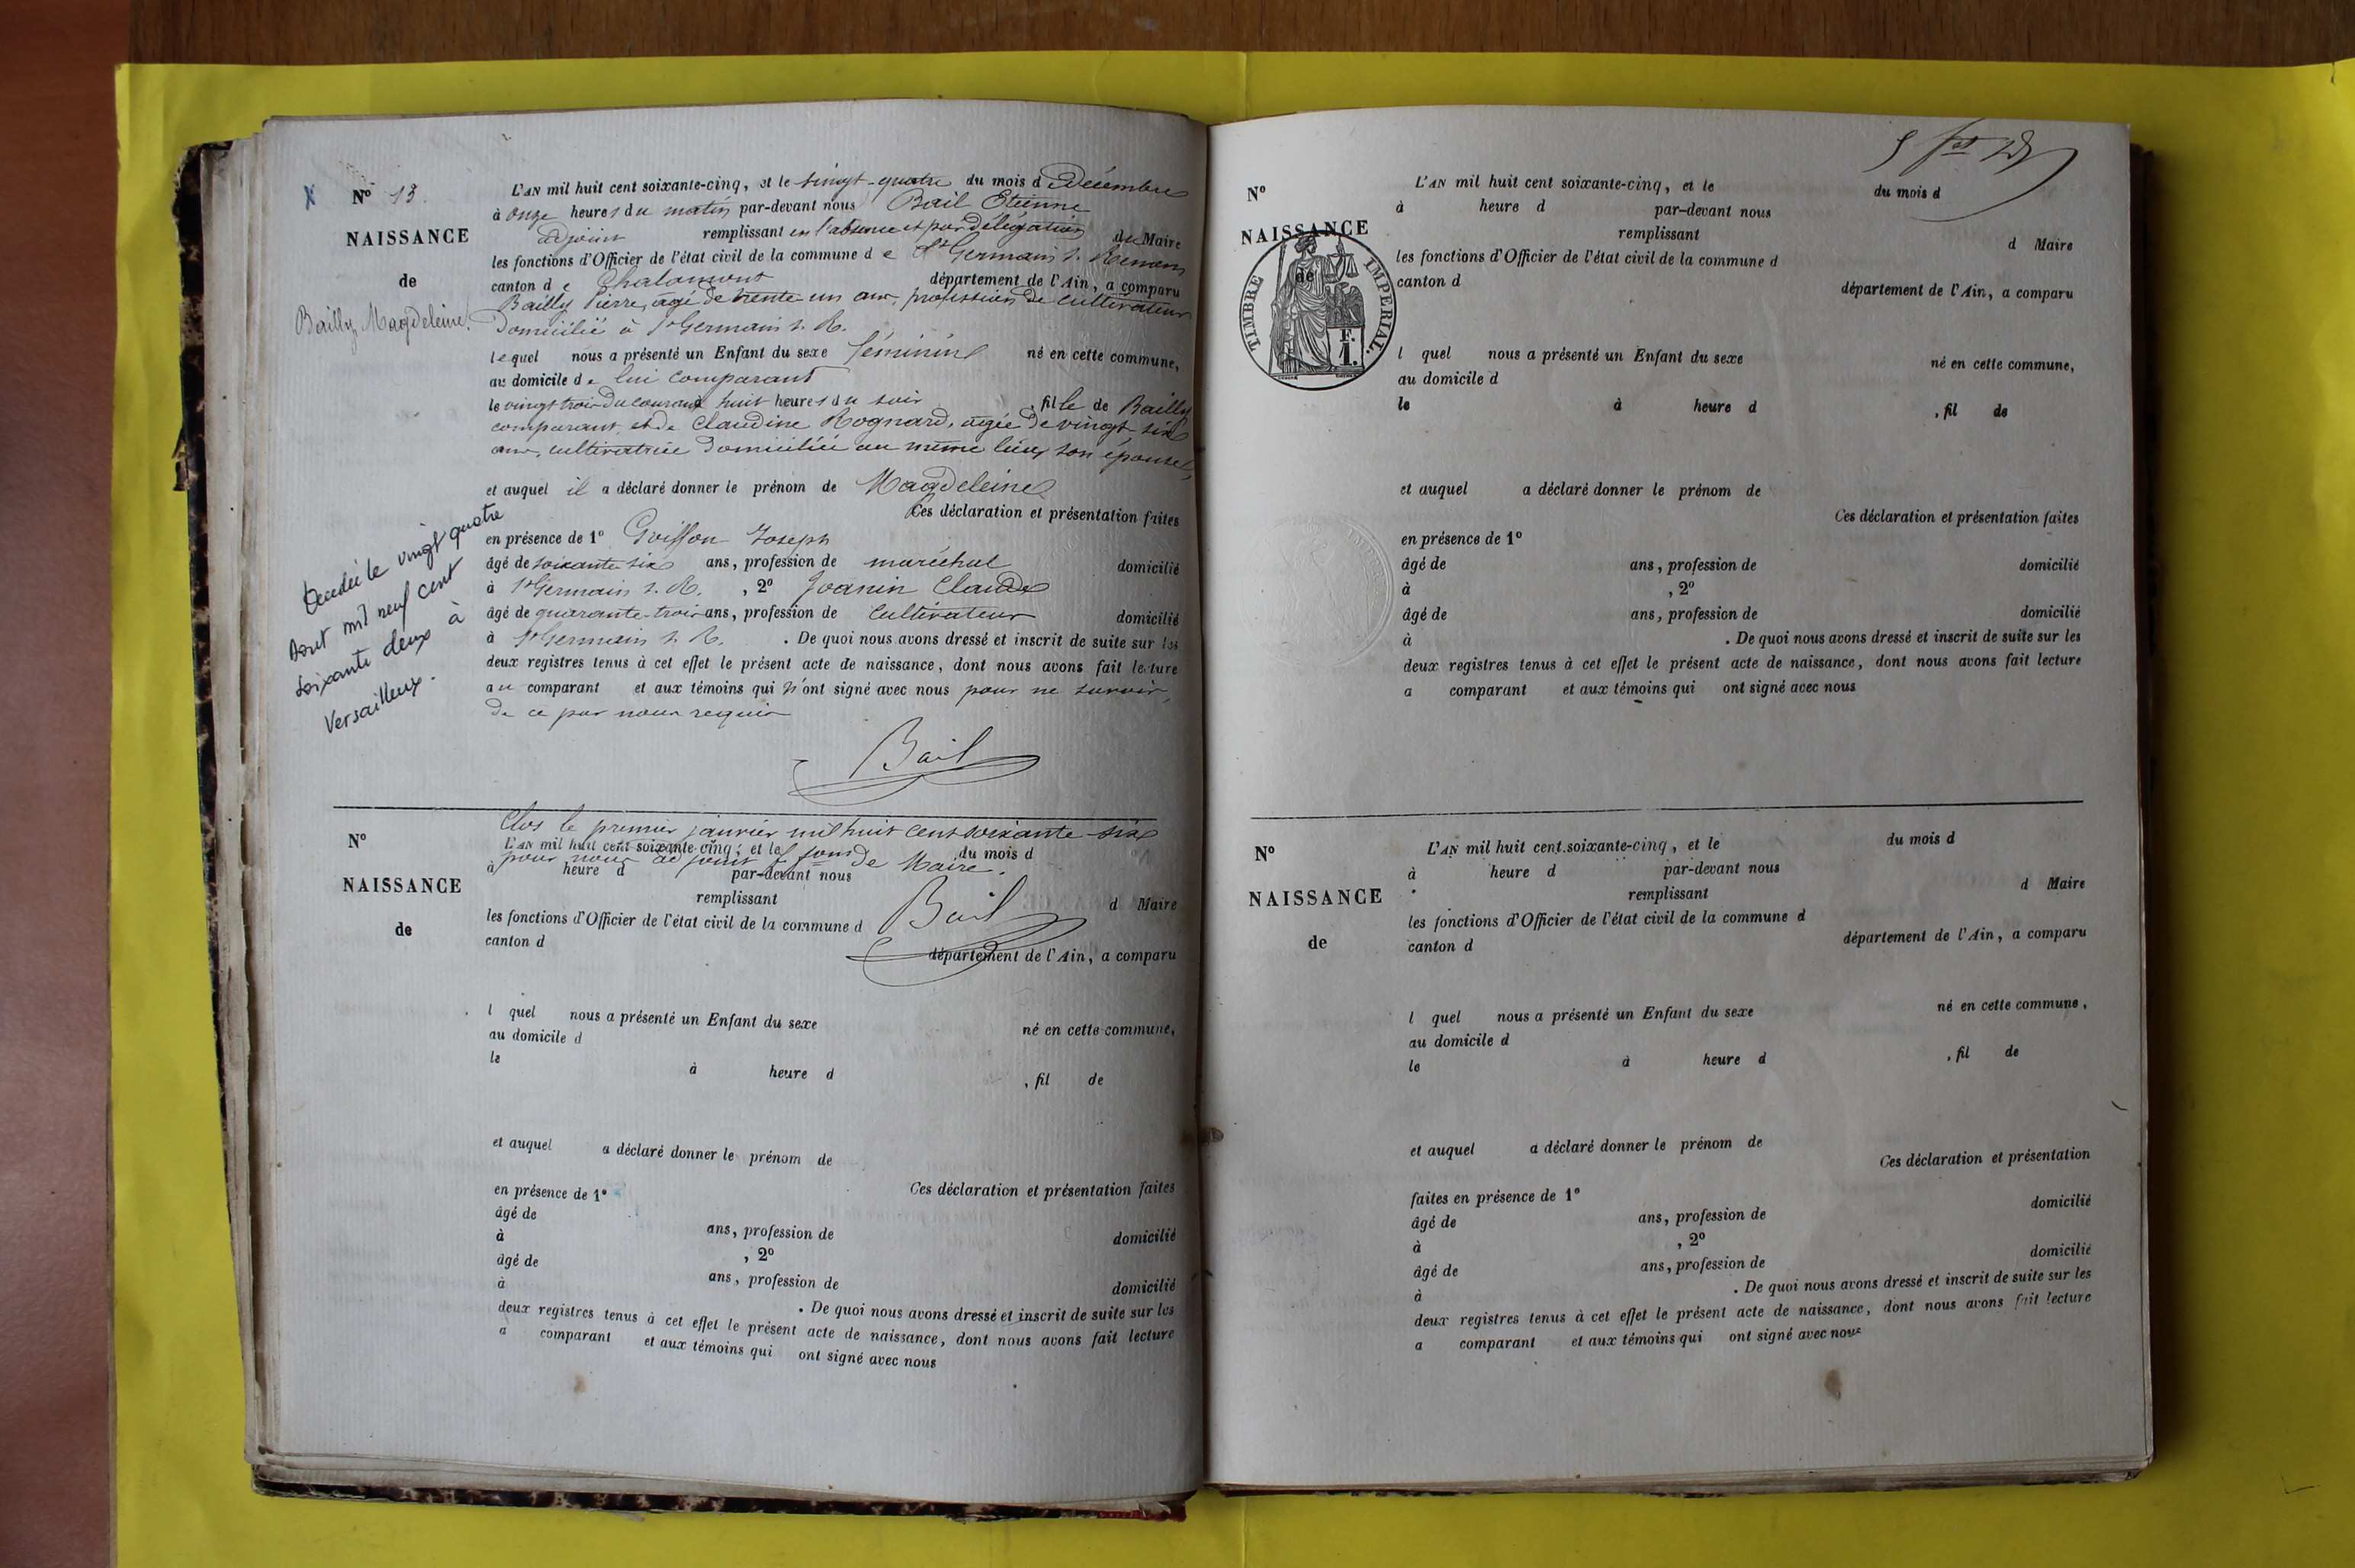 N° 13.
NAISSANCE
de
Bailly Magdeleine.
L'AN mil huit cent soixante-cinq, et le vingt-quatre du mois de Décembre
à onze heures du matin par-devant nous Bail Etienne
adjoint remplissant en l'absence et par délégation du Maire
les fonctions d'Officier de l'état civil de la commune de St Germain s. Renom
canton de Chalamont département de l'Ain, a comparu
Bailly Pierre, agé de trente un ans, profession de cultivateur
domicilié à St Germain s. R.
lequel nous a présenté un Enfant du sexe féminin né en cette commune,
au domicile de lui comparant
le vingt trois du courant à huit heures du soir, fille de Bailly
comparant et de Claudine Rognard, agée de vingt six
ans, cultivatrice domiciliée au même lieu, son épouse,
et auquel il a déclaré donner le prénom de Magdeleine
Ces déclaration et présentation faites
en présence de 1° Goiffon Joseph
âgé de soixante six ans, profession de maréchal domicilié
à St Germain s. R. , 2° Joanin Claude
âgé de quarante-trois ans, profession de cultivateur domicilié
à St Germain s. R. . De quoi nous avons dressé et inscrit de suite sur les
deux registres tenus à cet effet le présent acte de naissance, dont nous avons fait lecture
au comparant et aux témoins qui n'ont signé avec nous pour ne savoir,
de ce par nous requis
Bail
Décédée le vingt quatre
Aout mil neuf cent
soixante deux à
Versailleux.
Clos le premier janvier mil huit cent soixante-six
N°
NAISSANCE
de
L'AN mil huit cent soixante-cinq, et le du mois d
pour nous adjoint f. fons de Maire.
à heure d par-devant nous
remplissant d Maire
Bail
les fonctions d'Officier de l'état civil de la commune d
canton d département de l'Ain, a comparu
l quel nous a présenté un Enfant du sexe né en cette commune,
au domicile d
le à heure d , fil de
et auquel a déclaré donner le prénom de
Ces déclaration et présentation faites
en présence de 1°
âgé de ans, profession de domicilié
à , 2°
âgé de ans, profession de domicilié
à . De quoi nous avons dressé et inscrit de suite sur les
deux registres tenus à cet effet le présent acte de naissance, dont nous avons fait lecture
a comparant et aux témoins qui ont signé avec nous
N°
NAISSANCE
de
TIMBRE IMPERIAL.
F.
1.
L'AN mil huit cent soixante-cinq, et le du mois d
à heure d par-devant nous
remplissant d Maire
les fonctions d'Officier de l'état civil de la commune d
canton d département de l'Ain, a comparu
l quel nous a présenté un Enfant du sexe né en cette commune,
au domicile d
le à heure d , fil de
et auquel a déclaré donner le prénom de
Ces déclaration et présentation faites
en présence de 1°
âgé de ans, profession de domicilié
à , 2°
âgé de ans, profession de domicilié
à . De quoi nous avons dressé et inscrit de suite sur les
deux registres tenus à cet effet le présent acte de naissance, dont nous avons fait lecture
a comparant et aux témoins qui ont signé avec nous
N°
NAISSANCE
de
L'AN mil huit cent soixante-cinq, et le du mois d
à heure d par-devant nous
remplissant d Maire
les fonctions d'Officier de l'état civil de la commune d
canton d département de l'Ain, a comparu
l quel nous a présenté un Enfant du sexe né en cette commune,
au domicile d
le à heure d , fil de
et auquel a déclaré donner le prénom de
Ces déclaration et présentation
faites en présence de 1°
âgé de ans, profession de domicilié
à , 2°
âgé de ans, profession de domicilié
à . De quoi nous avons dressé et inscrit de suite sur les
deux registres tenus à cet effet le présent acte de naissance, dont nous avons fait lecture
a comparant et aux témoins qui ont signé avec nous